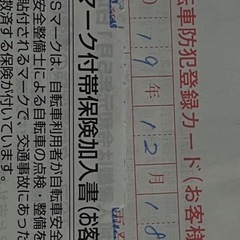 転車防犯登録カード(お客様
019年12月18
マーク付帯保険加入書(お客
Sマークは、自転車利用者が自転車安全
安全整備士による自転車の点検、整備を
貼付されるマークで、交通事故にあった
救済する保険が付いています。